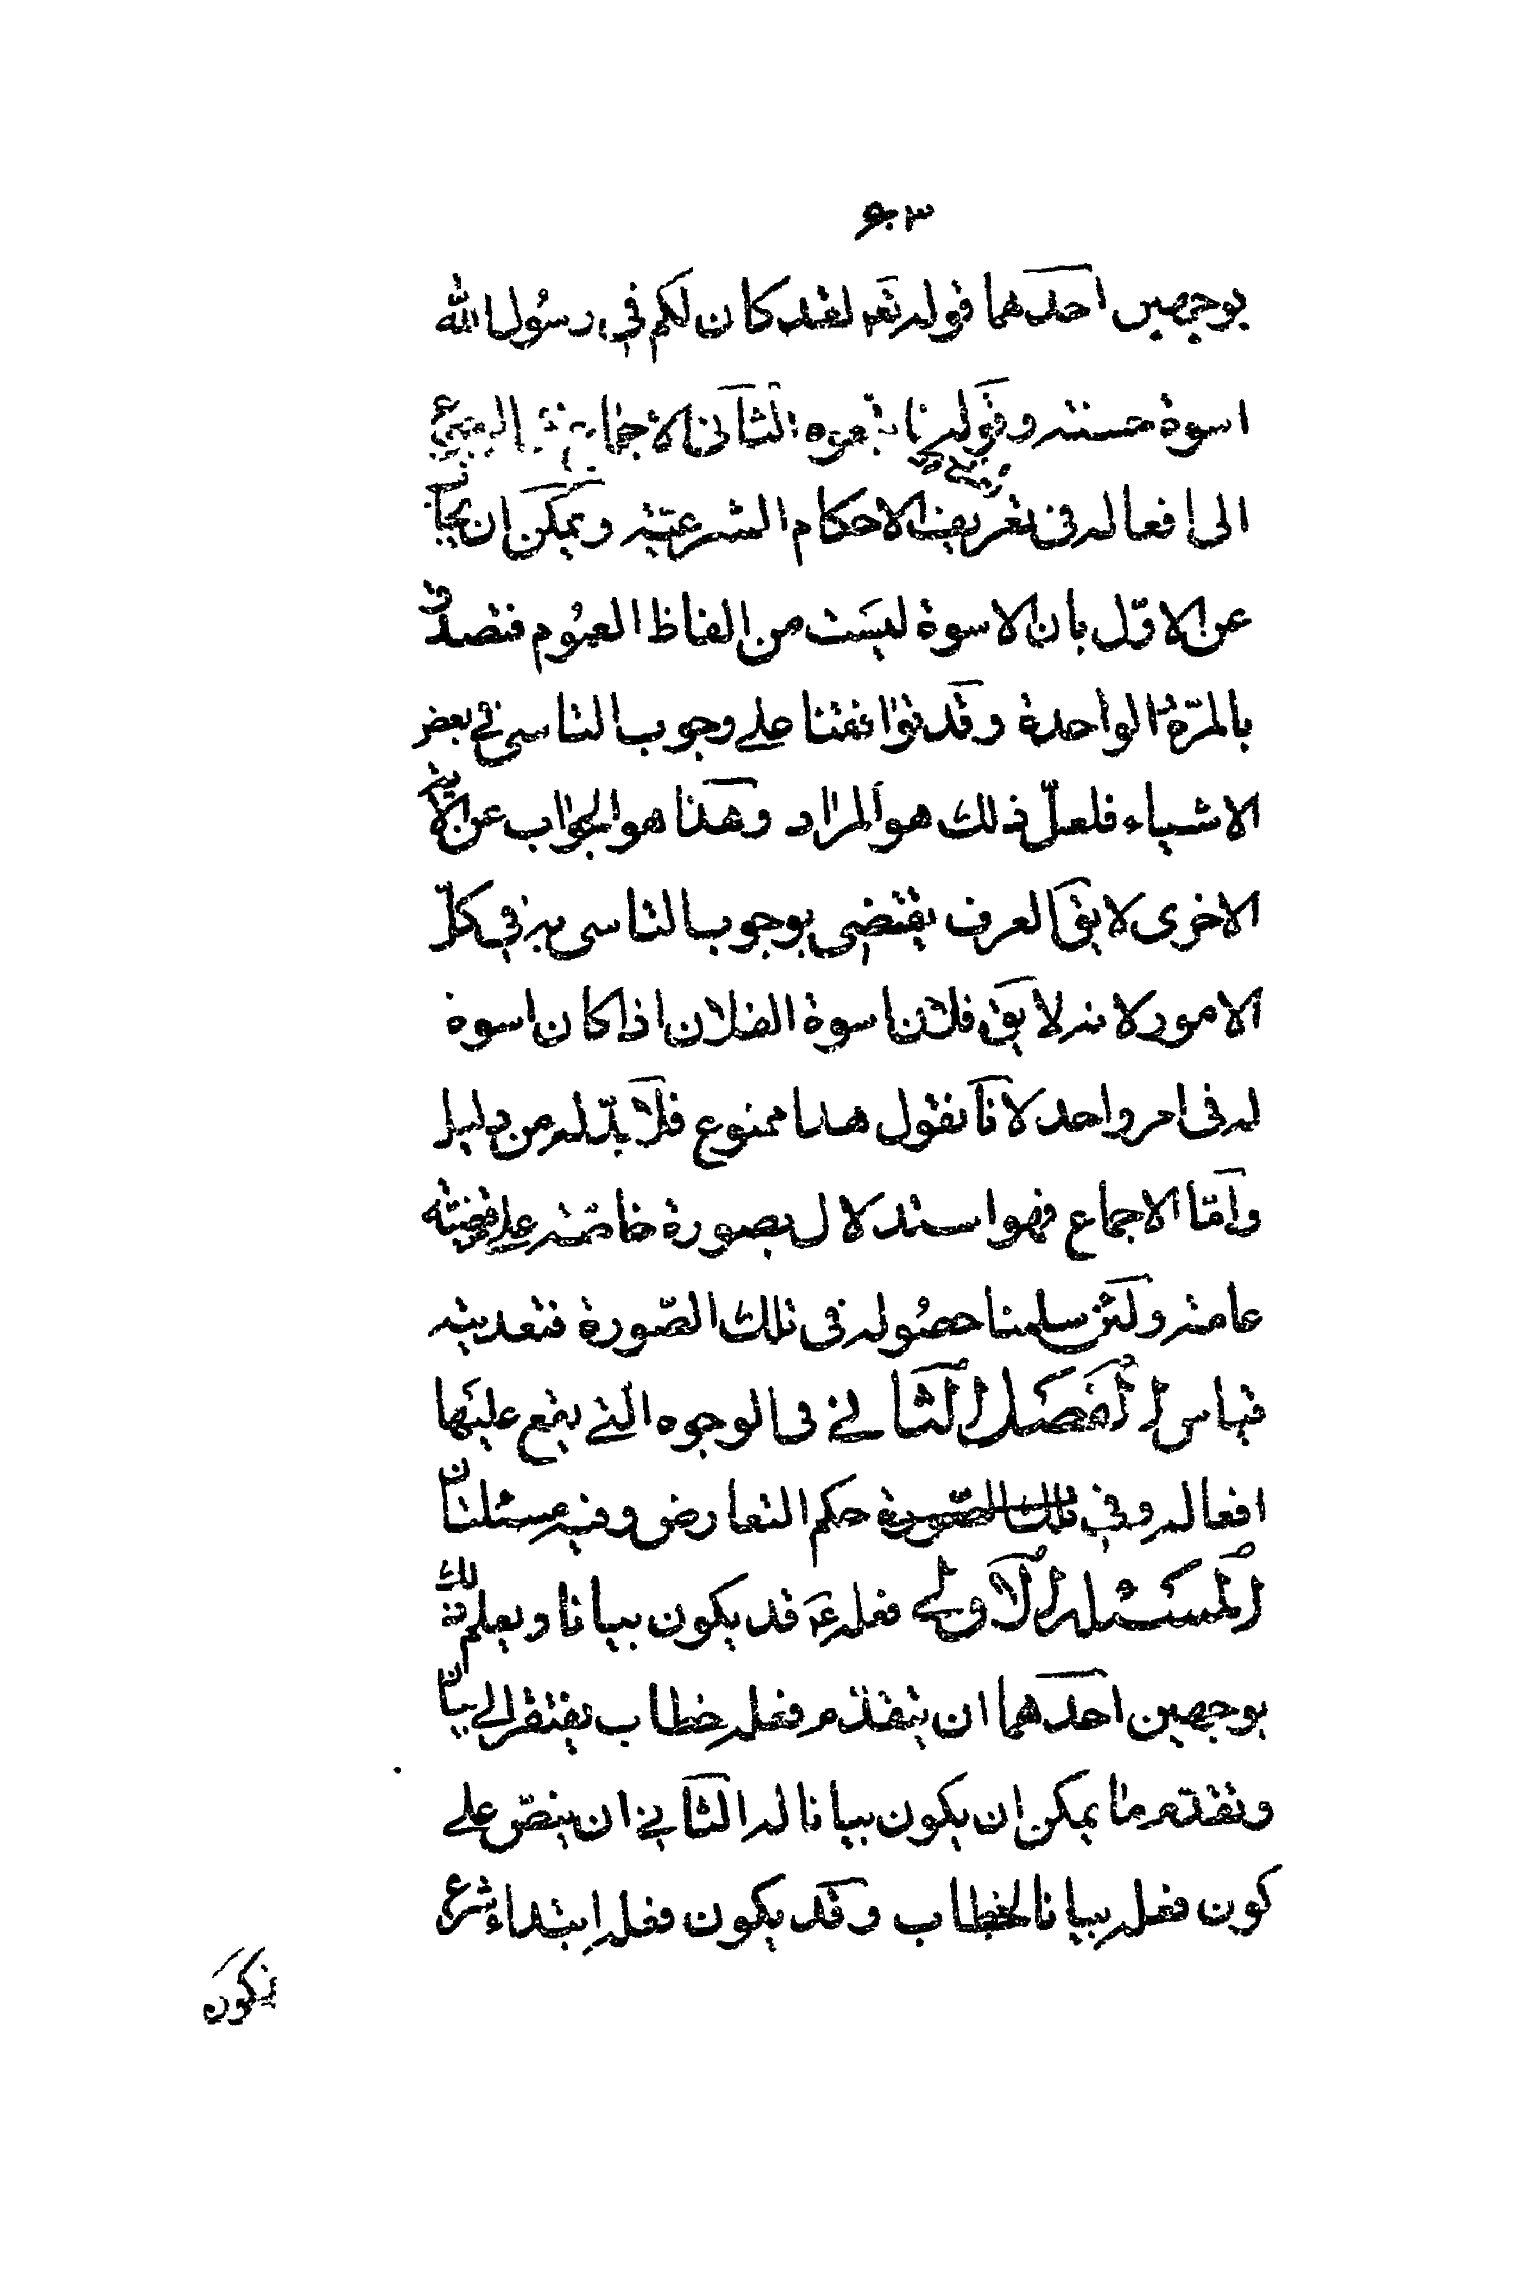 بوجهين احدهما قوله تع لقد كان لكم في رسول الله
اسوة حسنة وقوله فاتبعوه الثاني الاجماع على الرجوع
الى افعاله في تعريف الاحكام الشرعية ويمكن ان يجاب
عن الاول بان الاسوة ليست من الفاظ العموم فتصدق
بالمرّة الواحدة وقد توافقنا على وجوب التاسي في بعض
الاشياء فلعلّ ذلك هو المراد وهذا هو الجواب عن الآية
الاخرى لا يق العرف يقتضي بوجوب التاسي به في كلّ
الامور لانه لا يق فلان اسوة الفلان اذا كان اسوة
له في امر واحد لانا نقول هذا ممنوع فلا بدّ له من دليل
وامّا الاجماع فهو استدلال بصورة خاصّة على قضيّة
عامة ولئن سلمنا حصوله في تلك الصّورة فتعديته
قياس الفصل الثاني في الوجوه التي يقع عليها
افعاله وفي تلك الصّورة حكم التعارض وفيه مسئلتان
المسئلة الاولى فعله ع قد يكون بيانا ويعلم ذلك
بوجهين احدهما ان يتقدّم فعله خطاب يفتقر الى بيان
وتقدّم ما يمكن ان يكون بيانا له الثاني ان ينصّ على
كون فعله بيانا لخطاب وقد يكون فعله ابتداء شرع